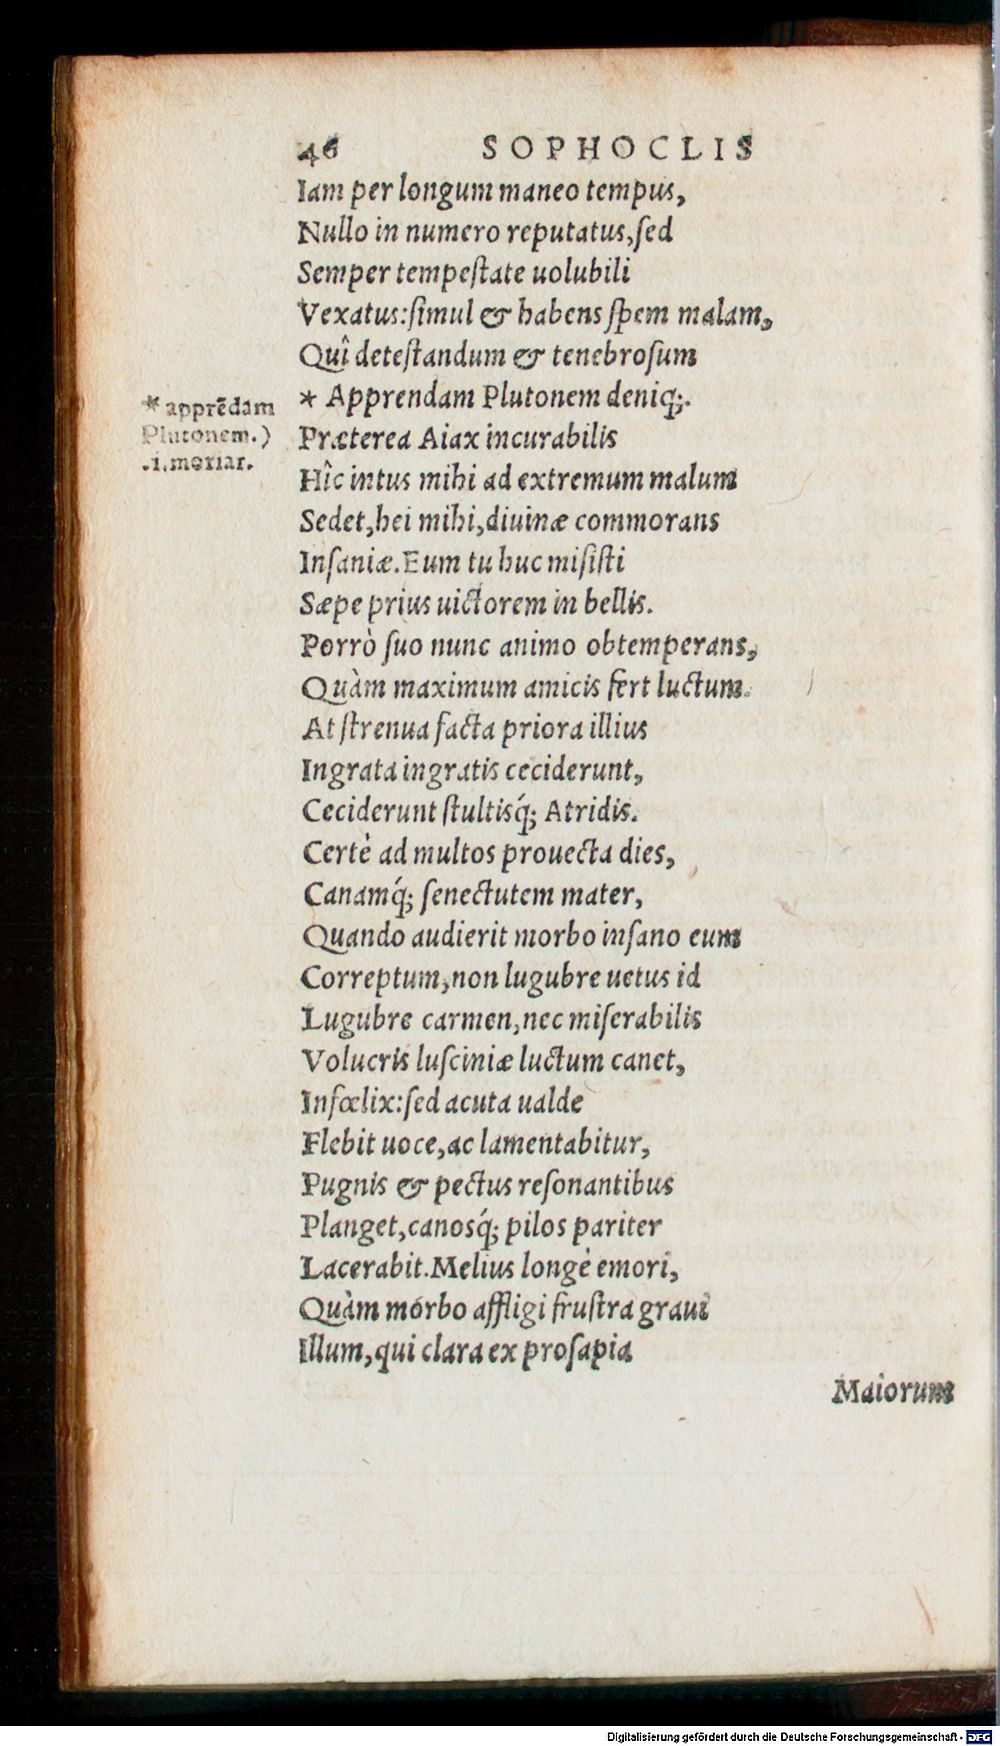 46 SOPHOCLIS
Iam per longum maneo tempus,
Nullo in numero reputatus,ſed
Semper tempeſtate uolubili
Vexatus:ſimul & habens ſpem malam,
Quî deteſtandum & tenebroſum
* Apprendam Plutonem deniq;.
* apprēdam
Plutonem.)
.i.moriar.
Præterea Aiax incurabilis
Hîc intus mihi ad extremum malum
Sedet,hei mihi,diuinæ commorans
Inſaniæ.Eum tu huc miſiſti
Sæpe prius uictorem in bellis.
Porrò ſuo nunc animo obtemperans,
Quàm maximum amicis fert luctum.
At ſtrenua facta priora illius
Ingrata ingratis ceciderunt,
Ceciderunt ſtultisq́; Atridis.
Certè ad multos prouecta dies,
Canamq́; ſenectutem mater,
Quando audierit morbo inſano eum
Correptum,non lugubre uetus id
Lugubre carmen,nec miſerabilis
Volucris luſciniæ luctum canet,
Infœlix:ſed acuta ualde
Flebit uoce,ac lamentabitur,
Pugnis & pectus reſonantibus
Planget,canosq́; pilos pariter
Lacerabit.Melius longè emori,
Quàm morbo affligi fruſtra graui
Illum,qui clara ex proſapia
Maiorum
Digitalisierung gefördert durch die Deutsche Forschungsgemeinschaft - DFG